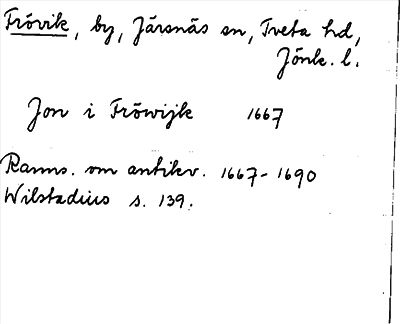 Frövik, by, Järsnäs sn, Tveta hd,
Jönk. l.
Jon i Fröwijk 1667
Ranns. om antikv. 1667-1690
Wilstadius s. 139.